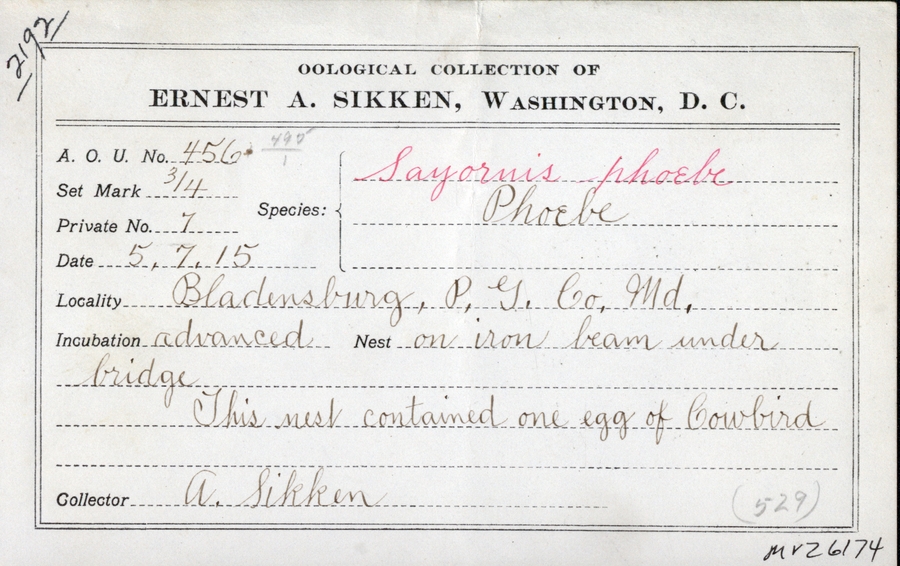 2192
OOLOGICAL COLLECTION OF
ERNEST A. SIKKEN, WASHINGTON, D. C.
A. O. U. No. 456.
Set Mark 3/4
Private No. 7
Date 5, 7, 15
Species: Sayornis phoebe
Phoebe
Locality Bladensburg, P. G. Co, Md,
Incubation advanced Nest on iron beam under
bridge
This nest contained one egg of Cowbird
Collector A. Sikken
(529)
MVZ6174